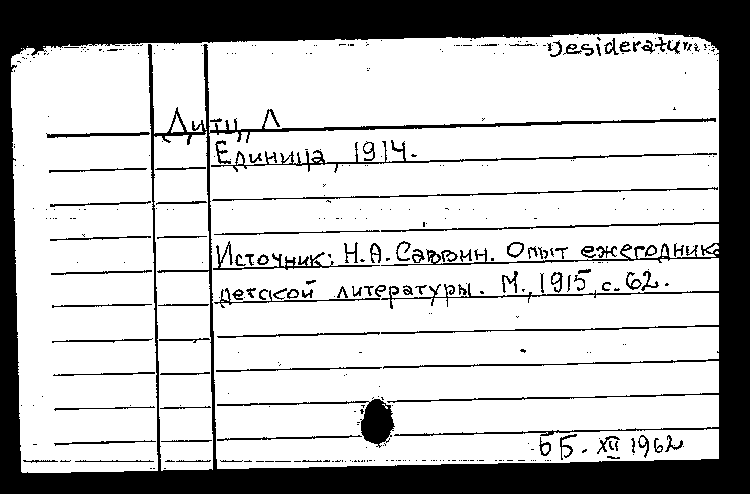 Desideratum
Дитц, Л
Единица, 1914.
Источник: Н.А.Саввин. Опыт ежегодника
детской литературы. М., 1915, с. 62.
ББ. XII 1962